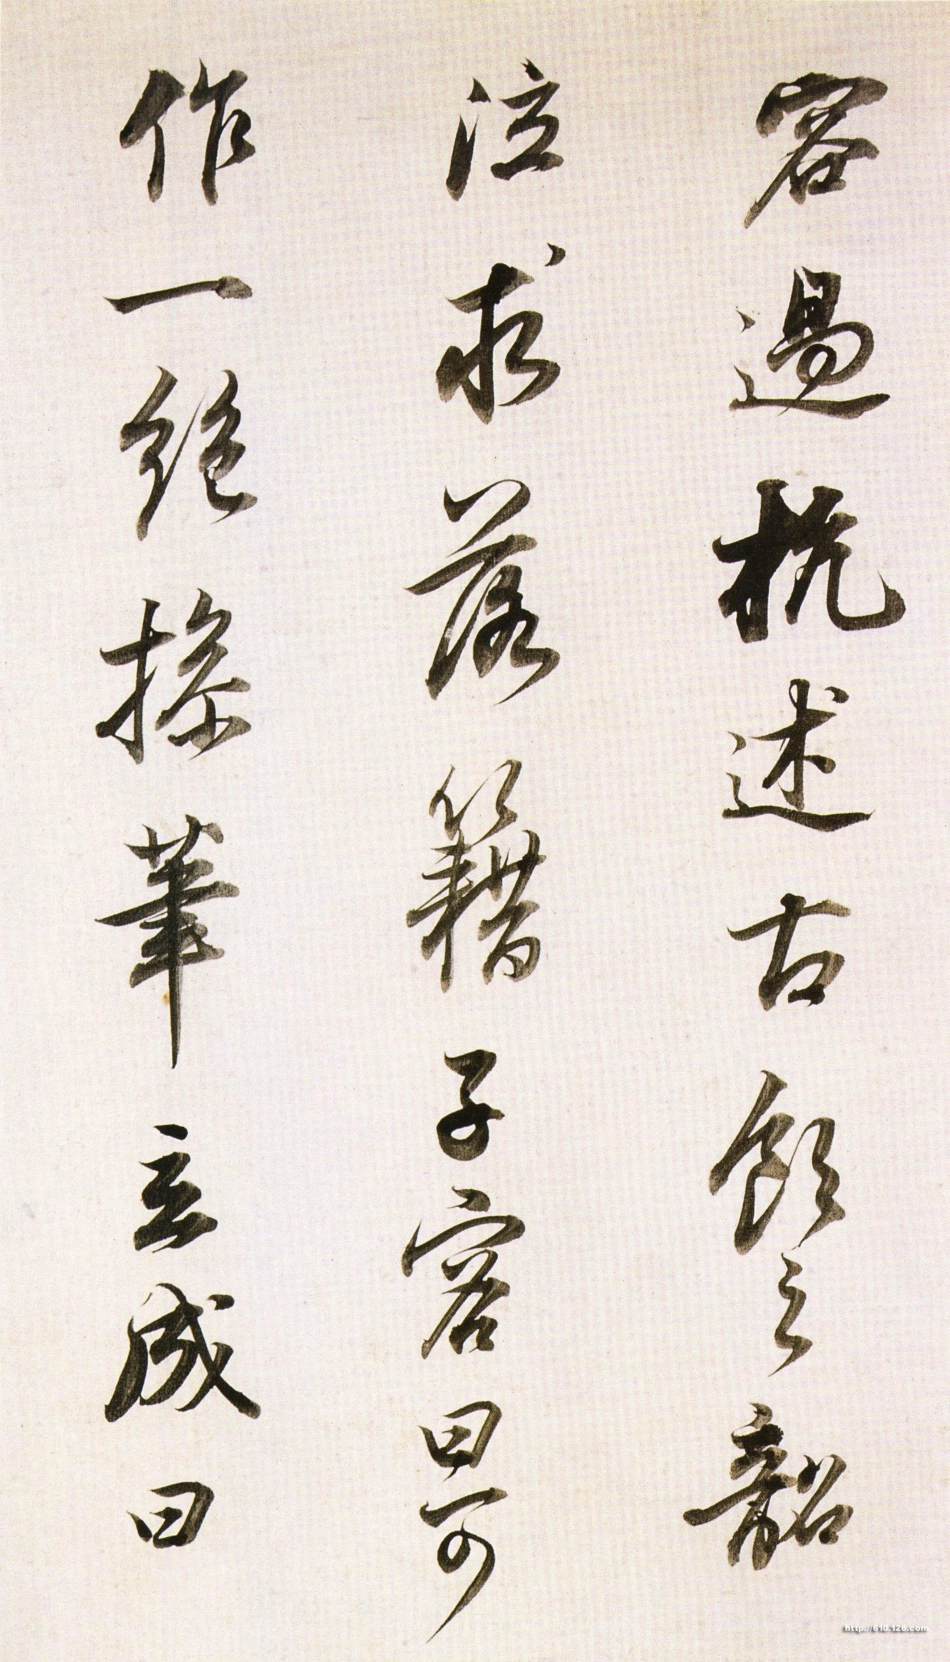 容過杭述古飲之韶
泣求落籍子容曰可
作一絶操筆立成曰
http://610.126.com